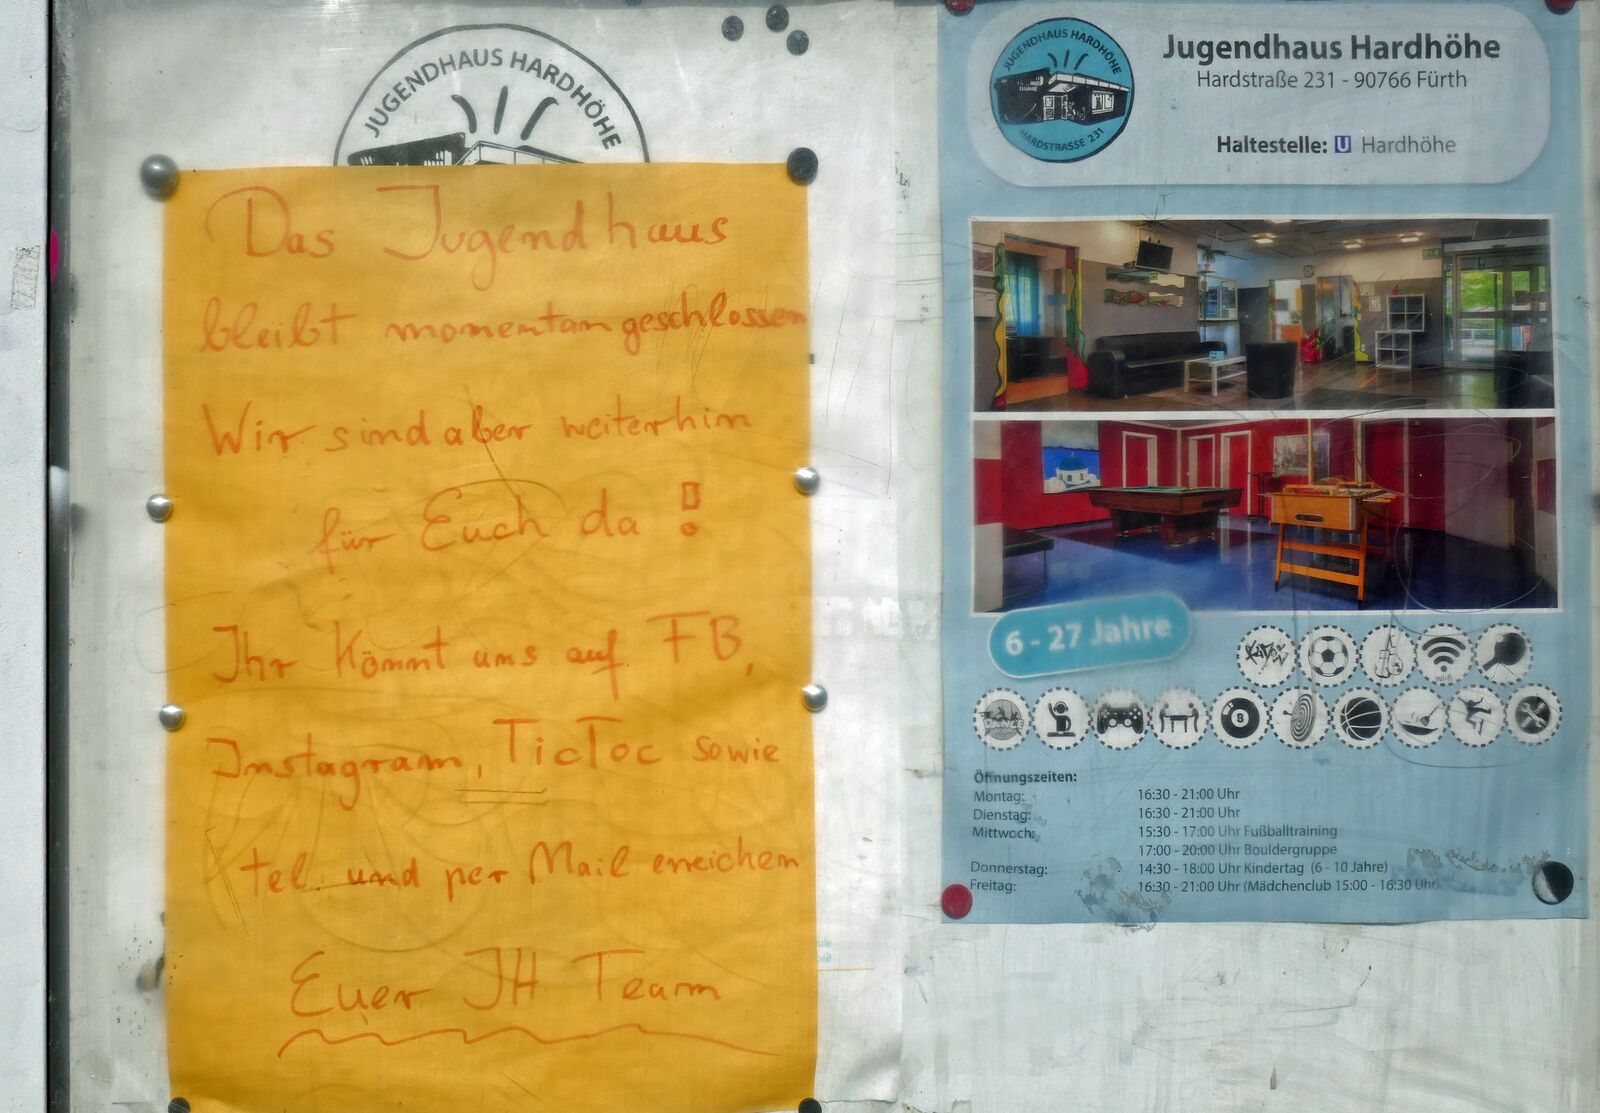 JUGENDHAUS HARDHÖHE
Das Jugendhaus
bleibt momentan geschlossen
Wir sind aber weiterhin
für Euch da!
Ihr könnt uns auf FB,
Instagram, TicToc sowie
tel. und per Mail erreichen
Euer JH Team
JUGENDHAUS HARDHÖHE
HARDSTRASSE 231
Jugendhaus Hardhöhe
Hardstraße 231 - 90766 Fürth
Haltestelle: U Hardhöhe
6 - 27 Jahre
wi-fi
DANCE
8
Öffnungszeiten:
Montag: 16:30 - 21:00 Uhr
Dienstag: 16:30 - 21:00 Uhr
Mittwoch: 15:30 - 17:00 Uhr Fußballtraining
17:00 - 20:00 Uhr Bouldergruppe
Donnerstag: 14:30 - 18:00 Uhr Kindertag (6 - 10 Jahre)
Freitag: 16:30 - 21:00 Uhr (Mädchenclub 15:00 - 16:30 Uhr)